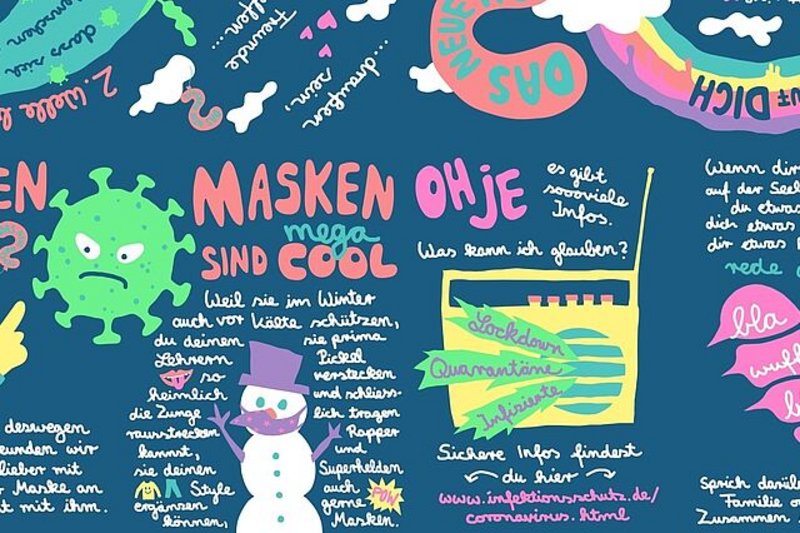 dass sich
2. Welle
Freunde
treffen...
...draußen
sein,
DAS NEUE
AUF DICH
EN
MASKEN
mega
SIND COOL
Weil sie im Winter
auch vor Kälte schützen,
du deinen
Lehrern
so
heimlich
die Zunge
rausstrecken
kannst,
sie deinen
Style
ergänzen
können,
sie prima
Pickel
verstecken
und schliess-
lich tragen
Rapper
und
Superhelden
auch
gerne POW
Masken.
deswegen
lieber mit
Maske an
mit ihm.
OH JE
es gibt
soooviele
Infos.
Was kann ich glauben?
Lockdown
Quarantäne
Infizierte
Sichere Infos findest
du hier
www.infektionsschutz.de/
coronavirus.html
Wenn dir
auf der Seel
du etwas
dich etwas
dir etwas
rede
bla
wuff
b
Sprich darü
Familie o
Zusammen